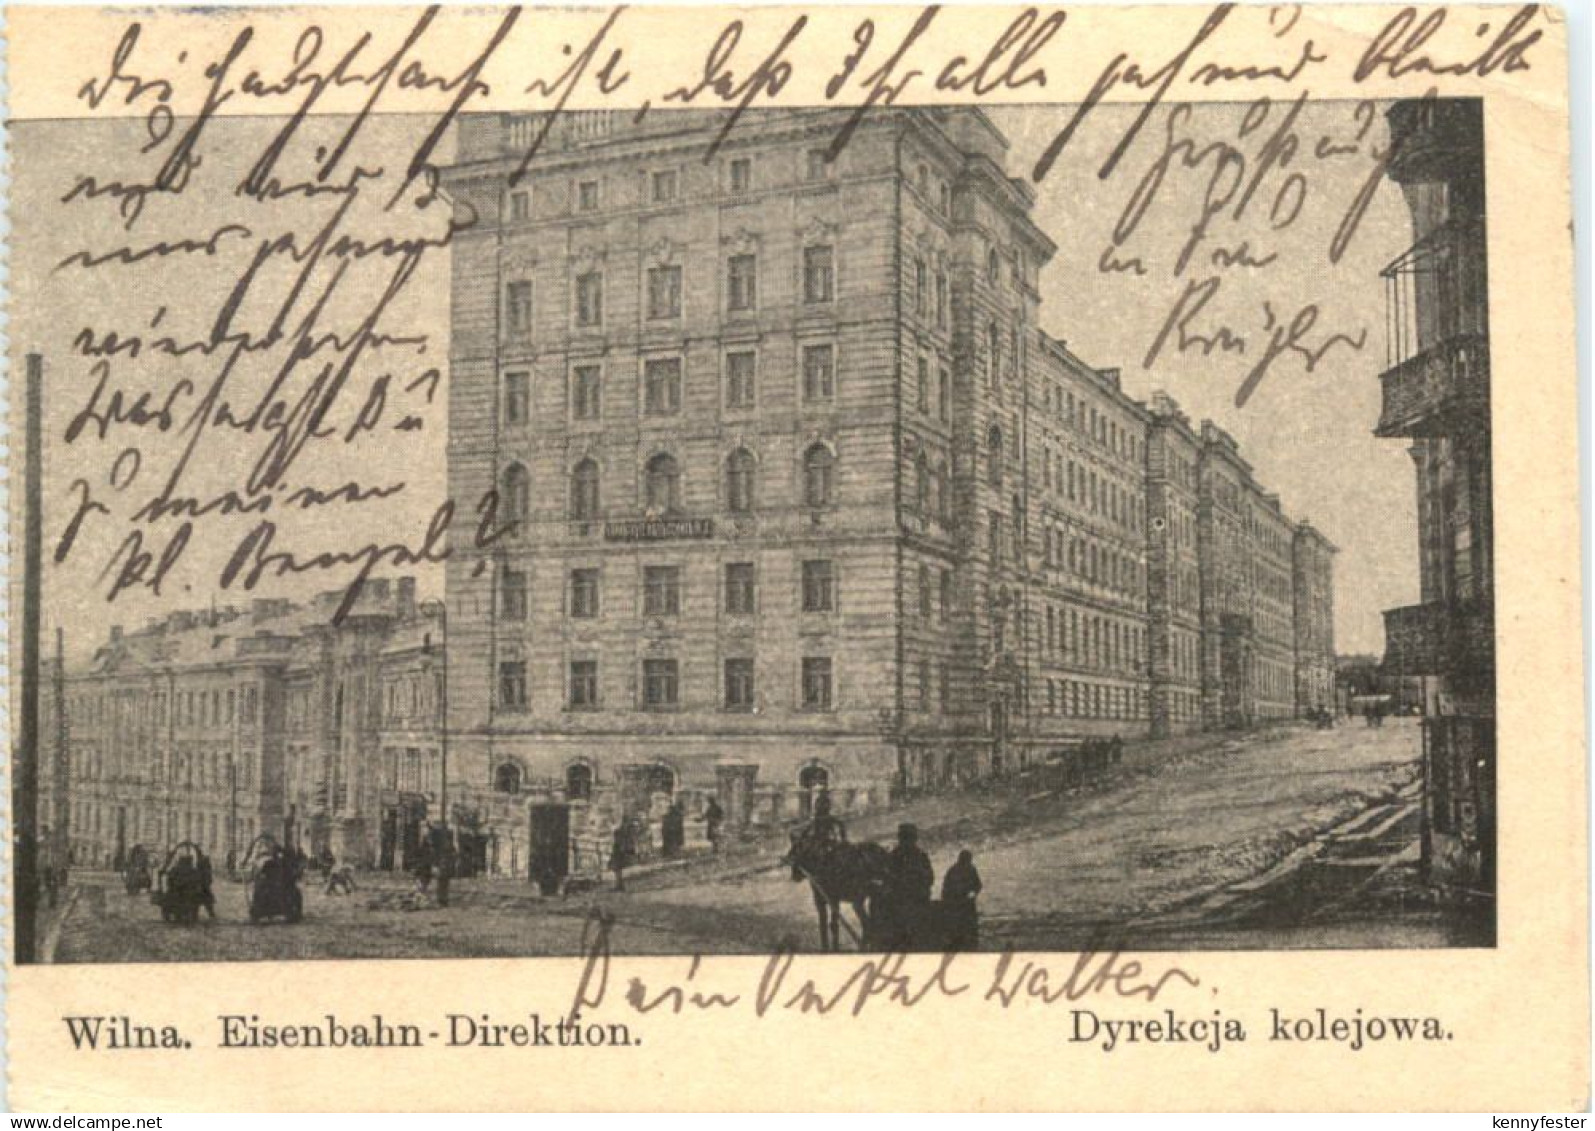 die Hauptsache ist, daß Ihr alle gesund bleibt
und wir
uns gesund
wiedersehen.
Was sagst Du
zu meiner
kl. Bengel?
Gruß auch
an die
Dein Onkel Walter.
Wilna. Eisenbahn-Direktion.
Dyrekcja kolejowa.
www.delcampe.net
kennyfester